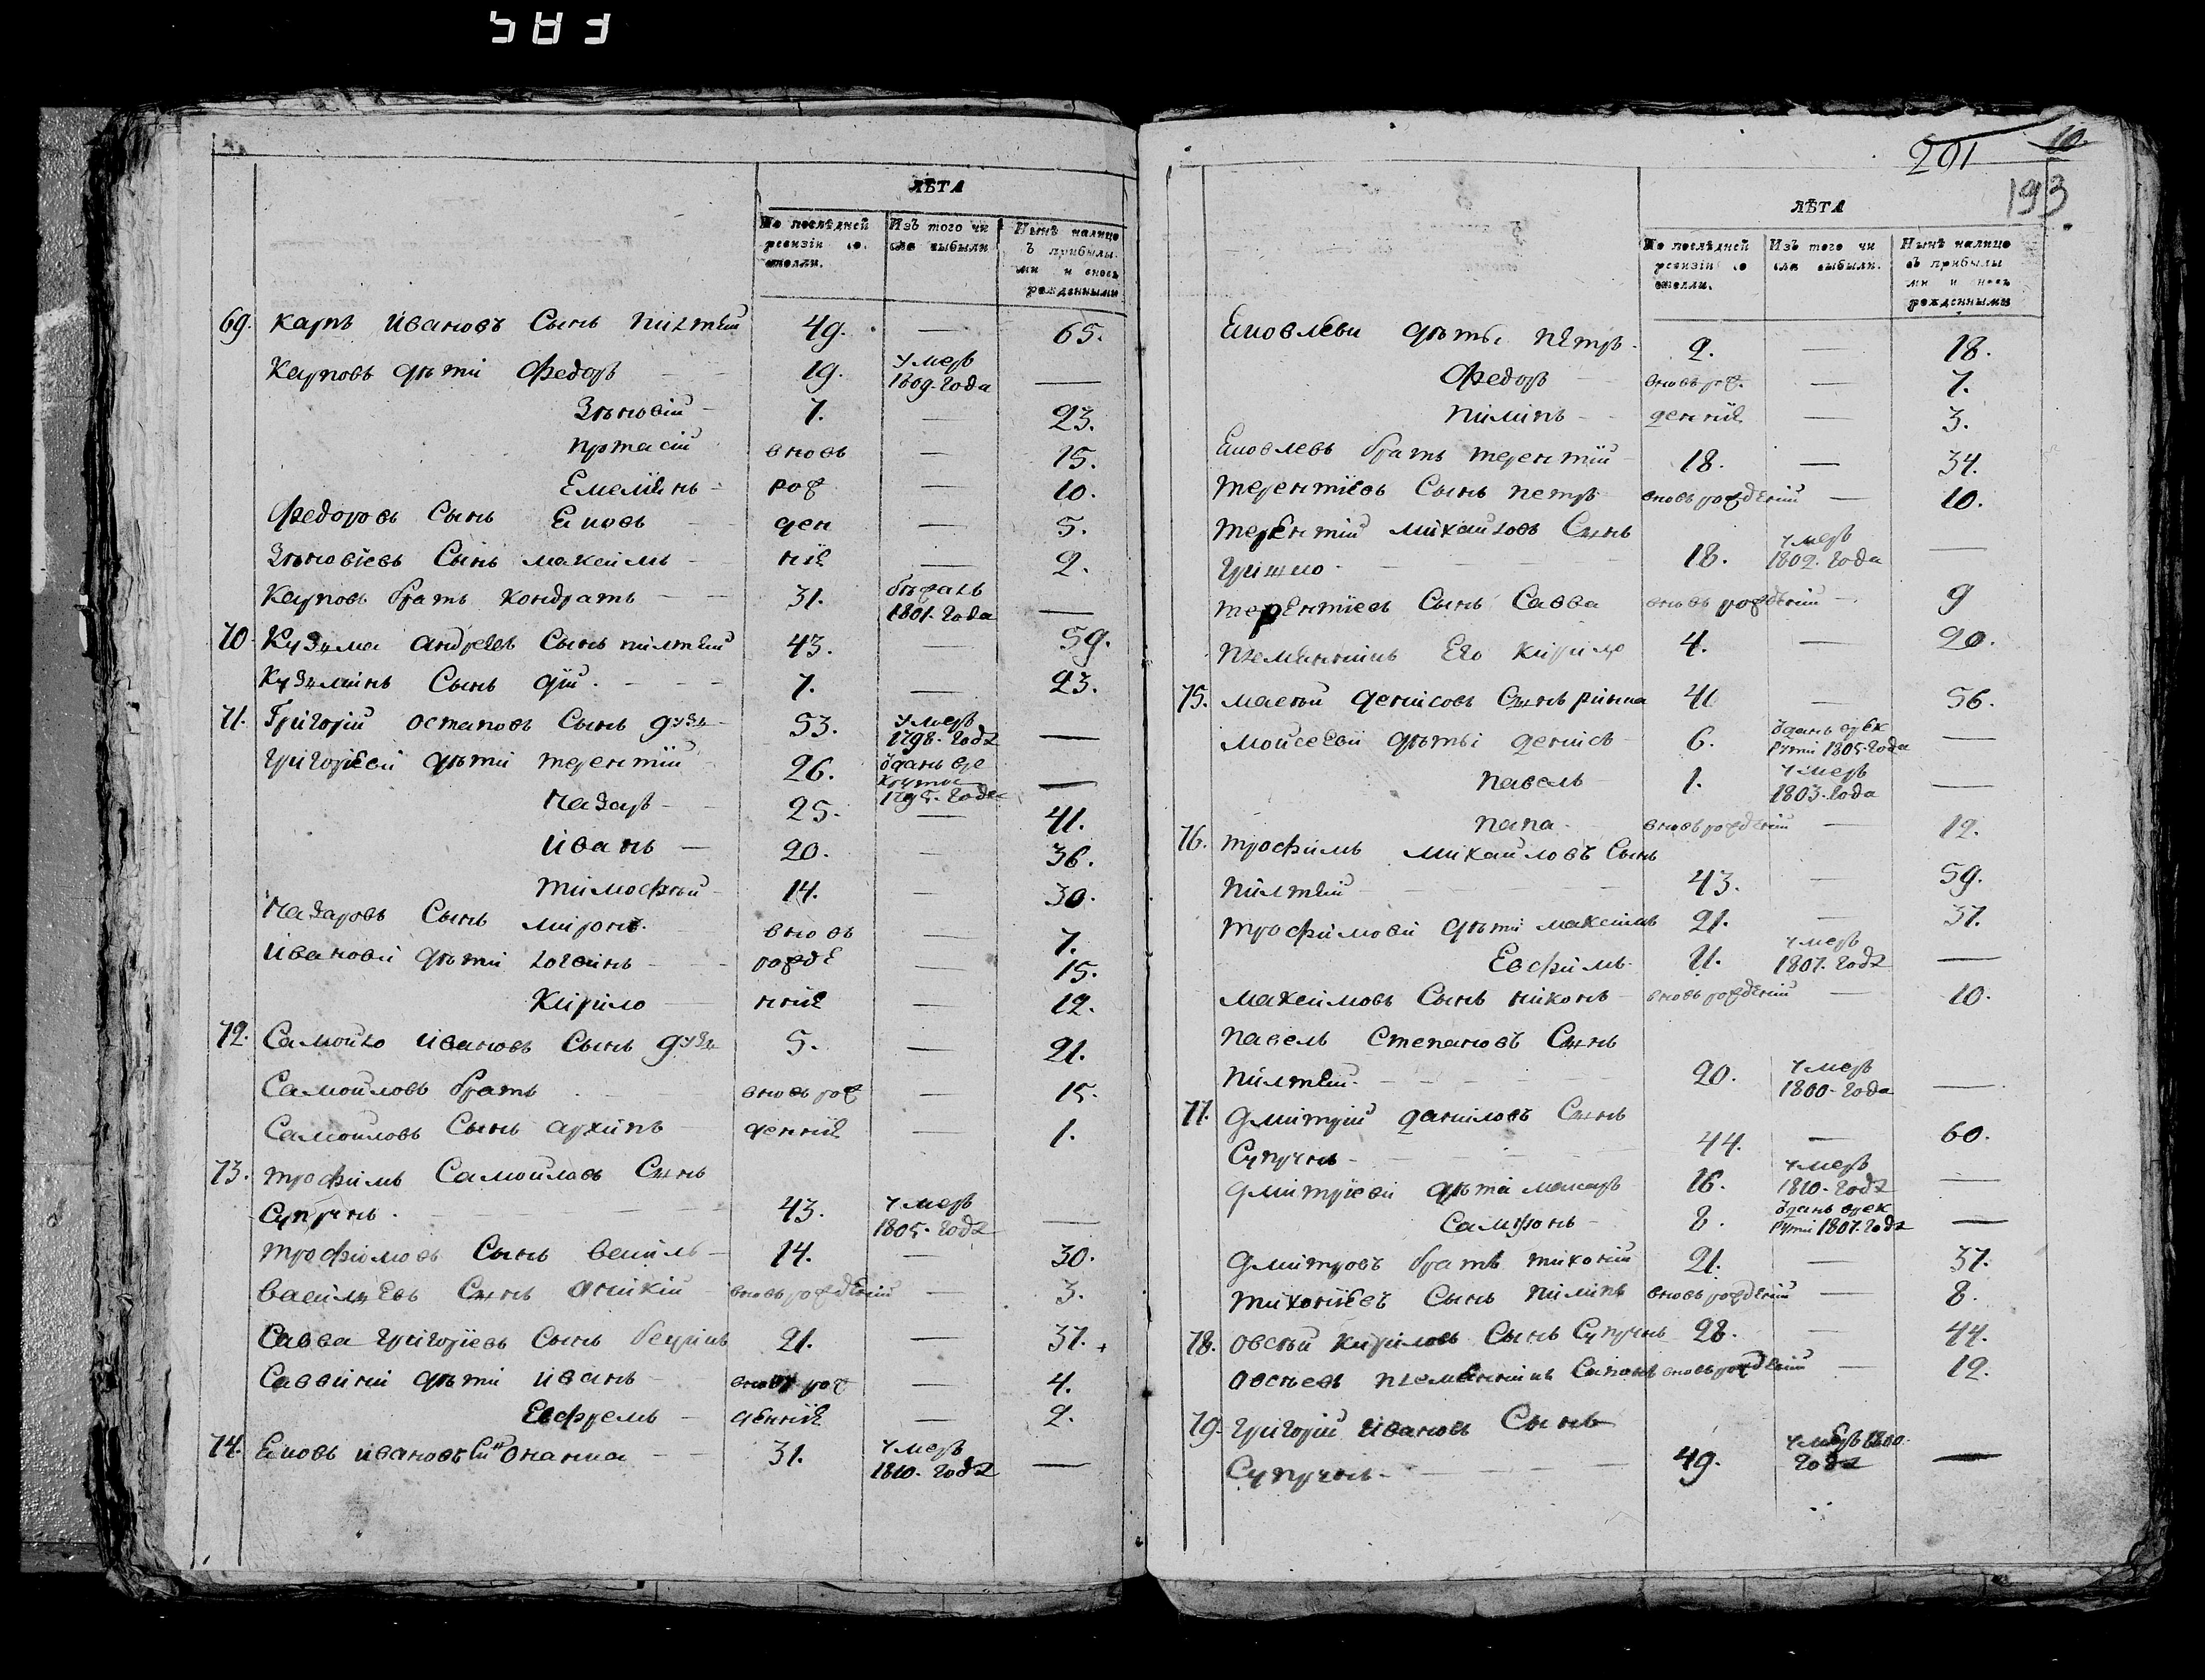 583
ЛѢТА
По послѣдней ревизіи со стояли.
Изъ того чи сла выбыли
Нынѣ налицо ъ прибылы ми и вновь рожденными
69. Карпъ Ивановъ Сынъ 49. — 65.
Карповъ дѣти Федоръ 19. умеръ 1809. года —
Зѣновій 7. — 23.
Протасій вновь — 15.
Емелiянъ рож — 10.
Федоровъ Сынъ Яковъ ден — 5.
Зѣновіевъ Сынъ Максимъ ніе — 2.
Карповъ братъ Кондратъ 31. бѣжалъ 1801. года —
70. Кузьма Андреевъ Сынъ 43. — 59.
Кузьминъ Сынъ 7. — 23.
71. Григорій Остаповъ Сынъ 53. умеръ 1798. года —
Григорiеви дѣти Терентій 26. отданъ вре круты 1795. года —
Назаръ 25. — 41.
Иванъ 20. — 36.
Тимофѣй 14. — 30.
Назаровъ Сынъ Миронъ вновь — 7.
Иванови дѣти Логвинъ рожде — 15.
Кирило нніе — 12.
72. Самойло Ивановъ Сынъ 5. — 21.
Самойловъ братъ вновь рож — 15.
Самойловъ Сынъ Архипъ денніе — 1.
73. Трофимъ Самойловъ Сынъ
Супрунъ 43. умеръ 1805. года —
Трофимовъ Сынъ Василь 14. — 30.
Васильевъ Сынъ Аникій вновь рожденій — 3.
Савва Григоріевъ Сынъ 21. — 37.
Саввини дѣти Иванъ вновь рож — 4.
Евфремъ денніе — 2.
74. Яковъ Ивановъ Сн Онанка 31. умеръ 1810. года —
201
193
ЛѢТА
По послѣдней ревизіи со стояли.
Изъ того чи сла выбыли.
Нынѣ налицо съ прибылы ми и новь рожденными
Яковлеви дѣты Петръ 2. — 18.
Федоръ вновь рож. — 7.
Пилипъ денніе — 3.
Яковлевъ братъ Терентій 18. — 34.
Терентіевъ Сынъ Петръ вновь рожденій — 10.
Терентій Михайловъ Сынъ
18. умеръ 1802. года —
Терентіевъ Сынъ Савва вновь рожденій — 9
Племянникъ Его Кирило 4. — 20.
75. Денисовъ Сынъ 40 — 56.
Мойсееви дѣты Денисъ 6. отданъ врек руты 1805. года —
Павелъ 1. умеръ 1803. года —
вновь рожденій — 12.
76. Трофимъ Михайловъ Сынъ
43. — 59.
Трофимови дѣти Максимъ 21. — 37.
Евфимъ 11. умеръ 1807. года —
Максимовъ Сынъ Никонъ вновь рожденій — 10.
Павелъ Степановъ Сынъ
20. умеръ 1800. года —
77. Дмитрій Даниловъ Сынъ
Супрунъ 44. — 60.
Дмитріеви дѣти Макаръ 16. умеръ 1810. года —
Самсонъ 8. отданъ врек руты 1807. года —
Дмитровъ братъ Тихоній 21. — 37.
Тихоніевъ Сынъ Пилипъ вновь рожденій — 8.
78. Овсѣй Кириловъ Сынъ Супрунъ 28. — 44.
Овсѣевъ племянникъ вновь рожденій — 12.
79. Григорій Ивановъ Сынъ
Супрунъ 49. умеръ 1800. года —